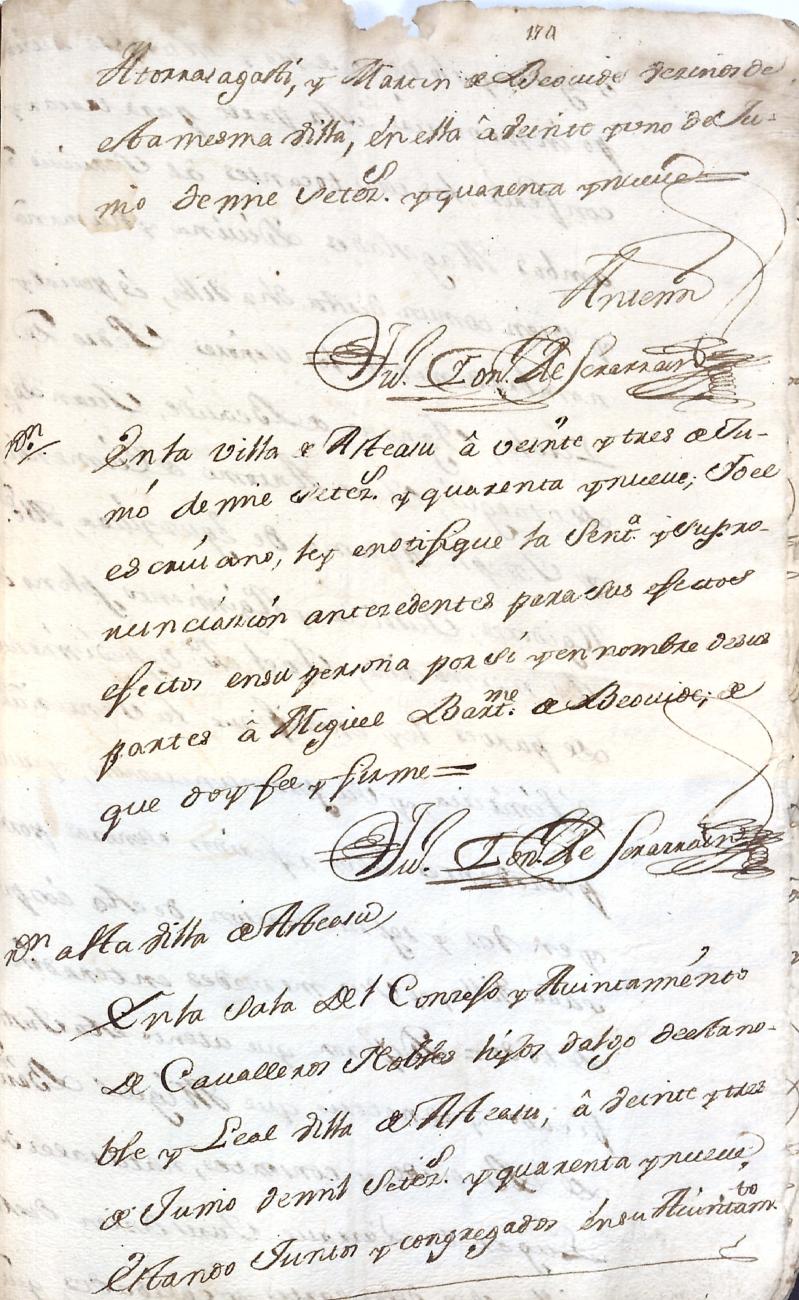 174
Atorrasagasti, y Martin de Beovide vecinos de
esta mesma villa, en ella â veinte y uno de Ju-
nio de mil Setezs. y quarenta y nueve
Antemi
Ju. Lon. de Sorarrain
Non. En la villa de Asteasu â veinte y tres de Ju-
nio de mil Setezs. y quarenta y nueve, Yo el
escriuano, ley enotifique la Senta. y Su pro-
nunciazion antezedentes para sus efectos
efectos en su persona por si y en nombre de sus
partes â Miguel Bartme. de Beovide, de
que doy fee y firme=
Ju. Lon. de Sorarrain
Non. alta villa de Asteasu
En la Sala Del Conzejo y Aiuntamiento
De Cavalleros Nobles hijos dalgo de esta no-
ble y Leal villa de Asteasu, â veinte y tres
de Junio de mil Setezs. y quarenta y nueve
Estando Juntos y congregados en su Aiuntamto.